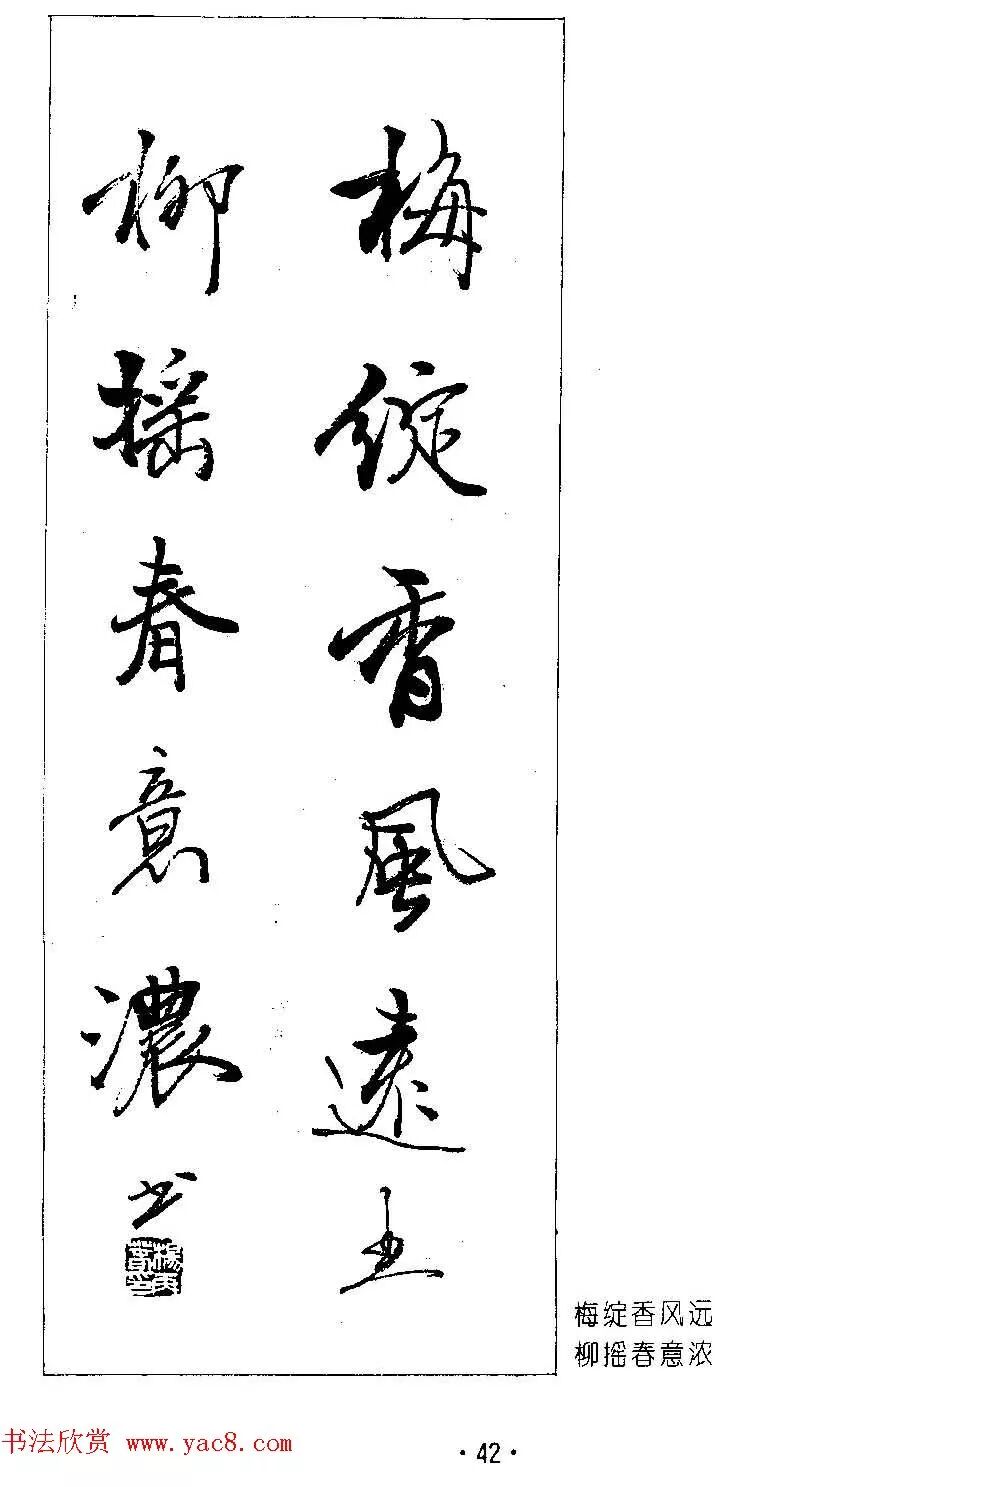 梅綻香風遠
柳摇春意濃
书
梅绽香风远
柳摇春意浓
书法欣赏 www.yac8.com
·42·